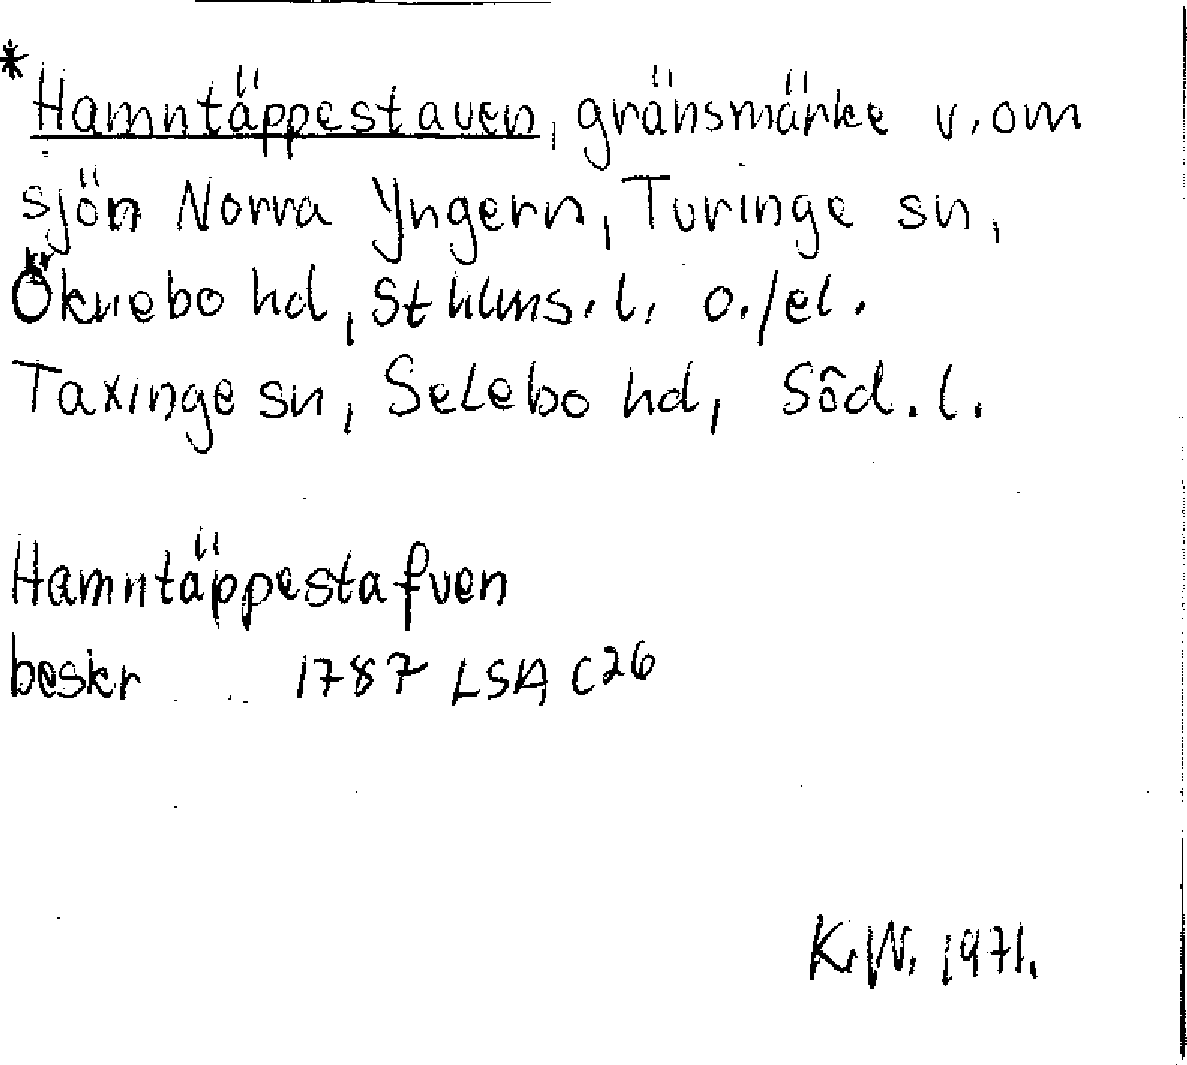 *Hamntäppestaven, gränsmärke v. om
sjön Norra Yngern, Turinge sn,
Öknebo hd, Sthlms. l. o./el.
Taxinge sn, Selebo hd, Söd. l.
Hamntäppestafven
beskr 1787 LSA C26
K.W. 1971.